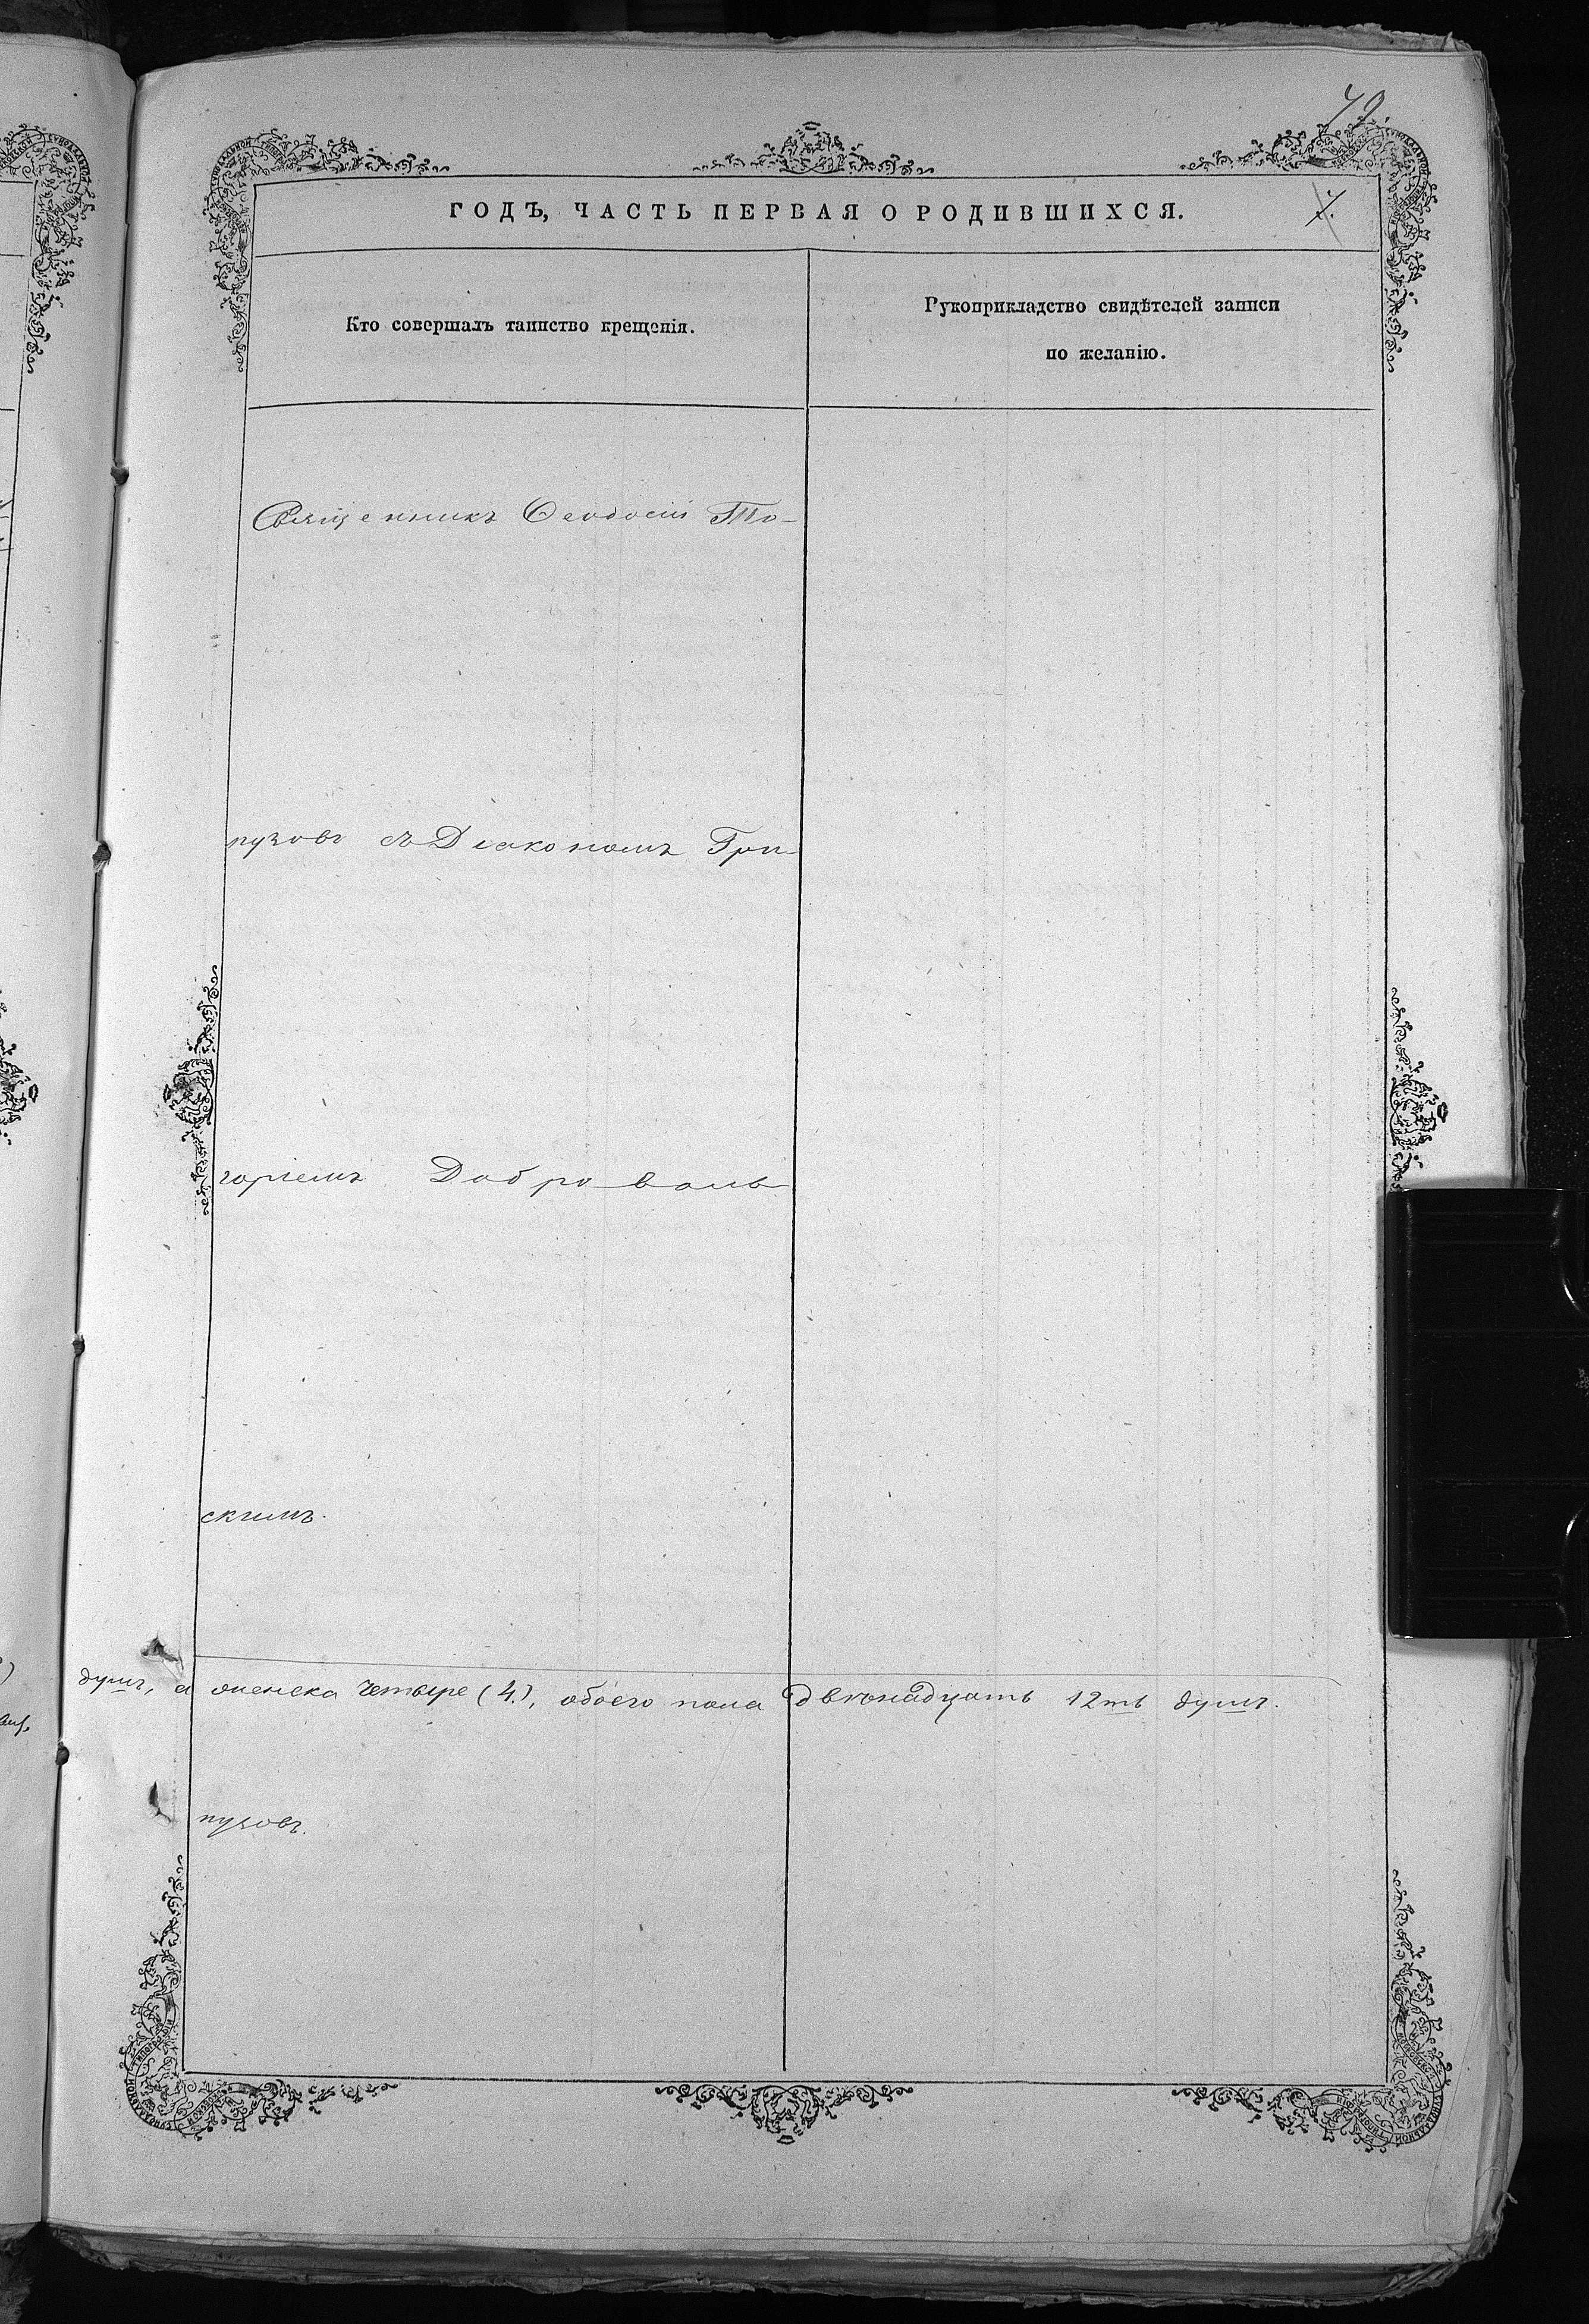 79.
ГОДЪ, ЧАСТЬ ПЕРВАЯ О РОДИВШИХСЯ.
7.
Кто совершалъ таинство крещенія.
Рукоприкладство свидѣтелей записи
по желанію.
Священникъ Ѳеодосій То-
пузовъ съ Діакономъ Гри-
горіемъ Доброволь-
скимъ.
душъ, а женска четыре (4.), обоего пола двѣнадцать 12ть душъ.
пузовъ.